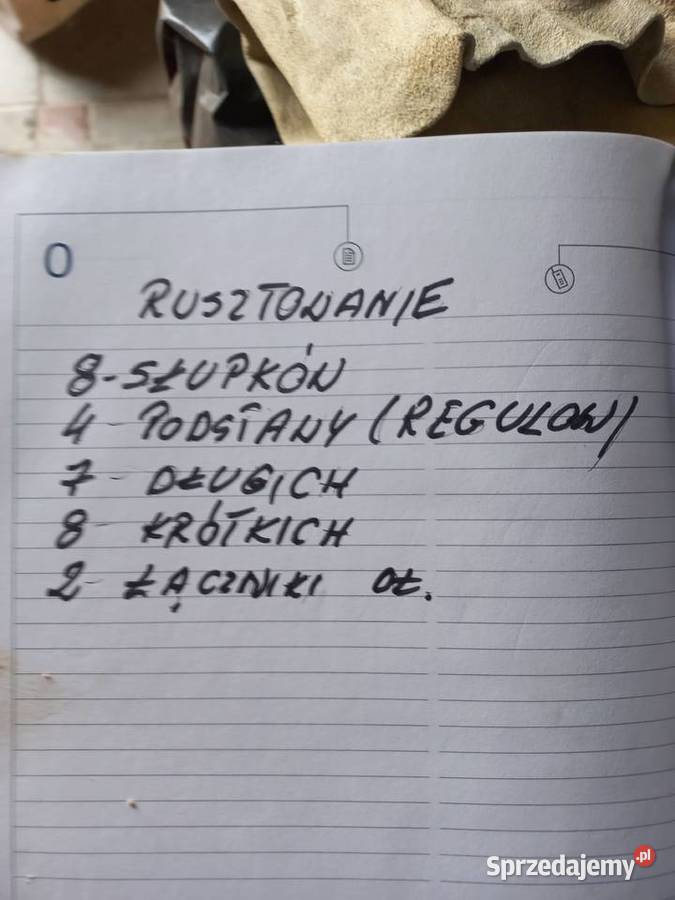 O
RUSZTOWANIE
8 - SŁUPKÓW
4 - PODSTAWY (REGULOW)
7 - DŁUGICH
8 - KRÓTKICH
2 - ŁĄCZNIKI DŁ.
Sprzedajemy.pl